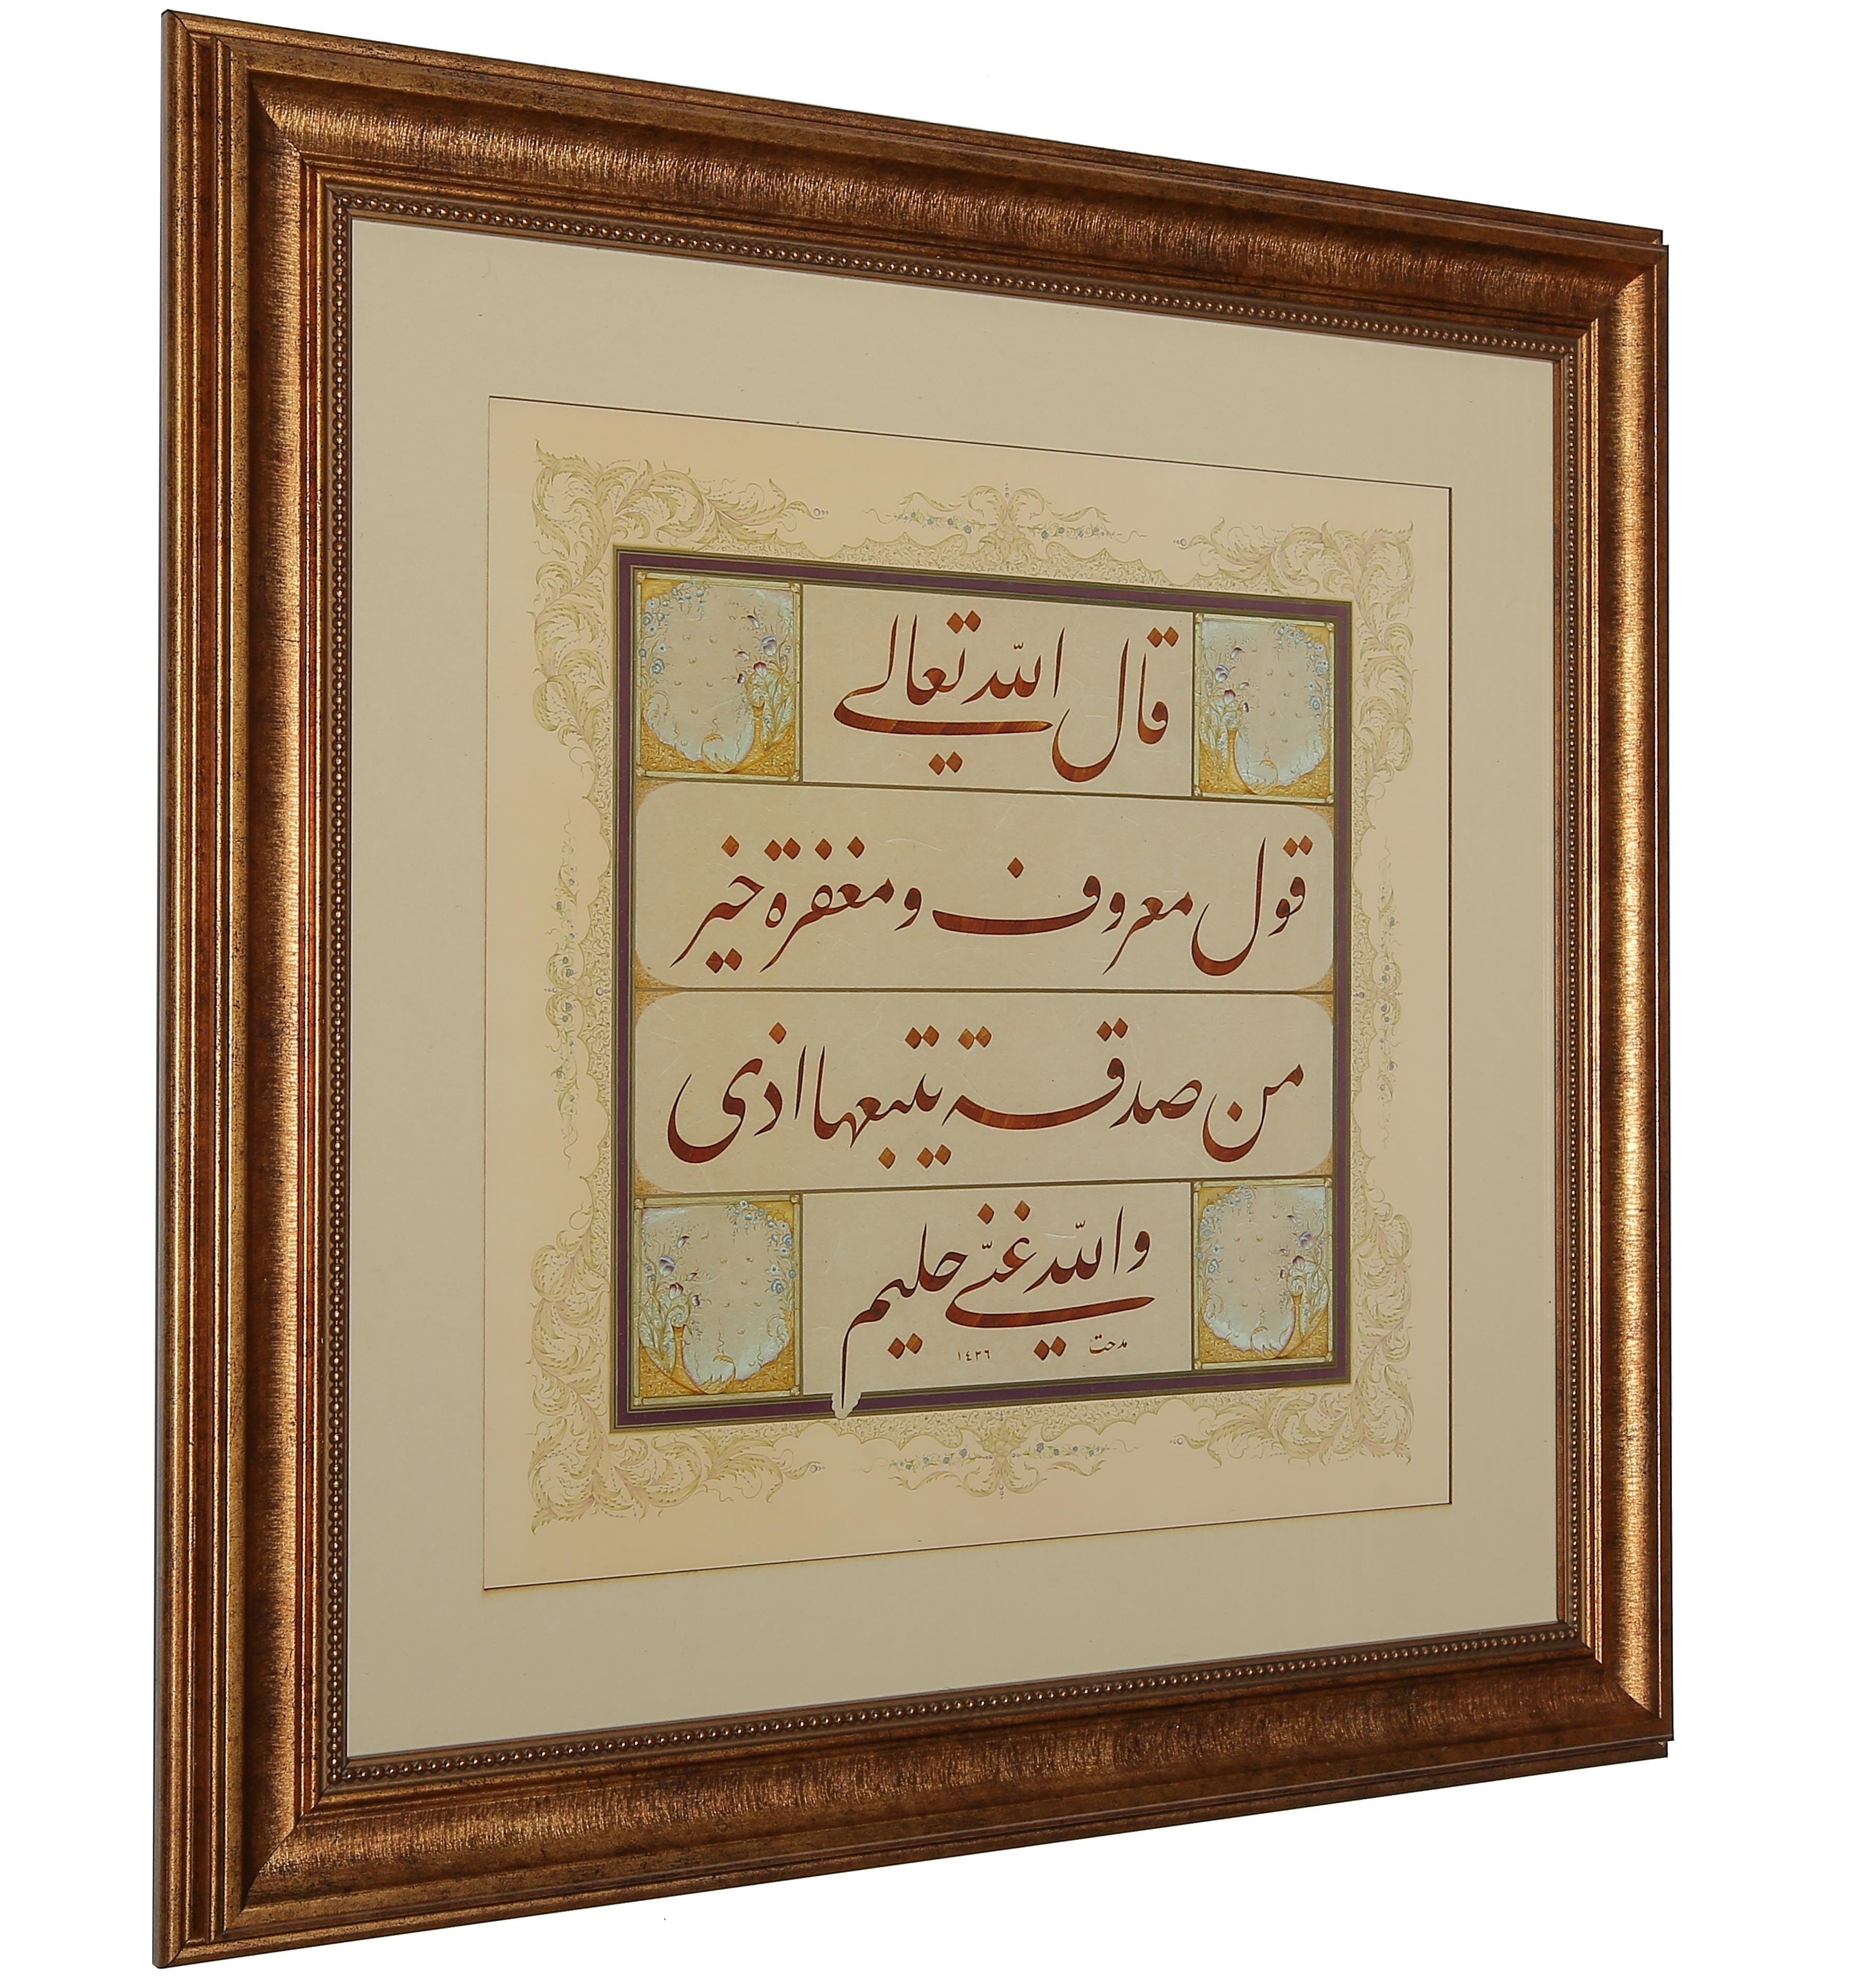 قال الله تعالى
قول معروف ومغفرة خير
من صدقة يتبعها اذى
والله غني حليم
مدحت
١٤٣٦